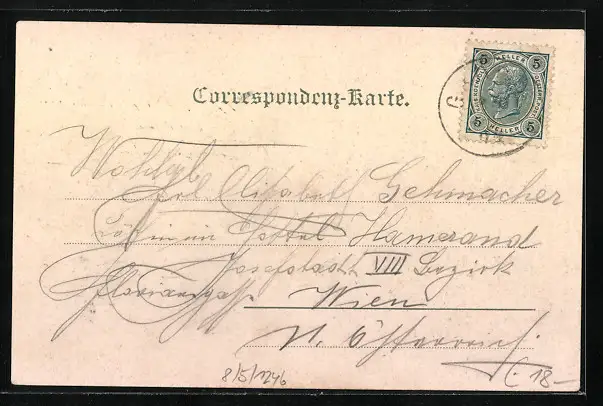 Correspondenz-Karte.
5 HELLER 5
5 HELLER 5
Wohlgb.
Elisabeth Gehmacher
Hotel Hamerand
Josefstadt VIII Bezirk
Floriangasse Wien
N. Österreich.
8/5/1246
18-